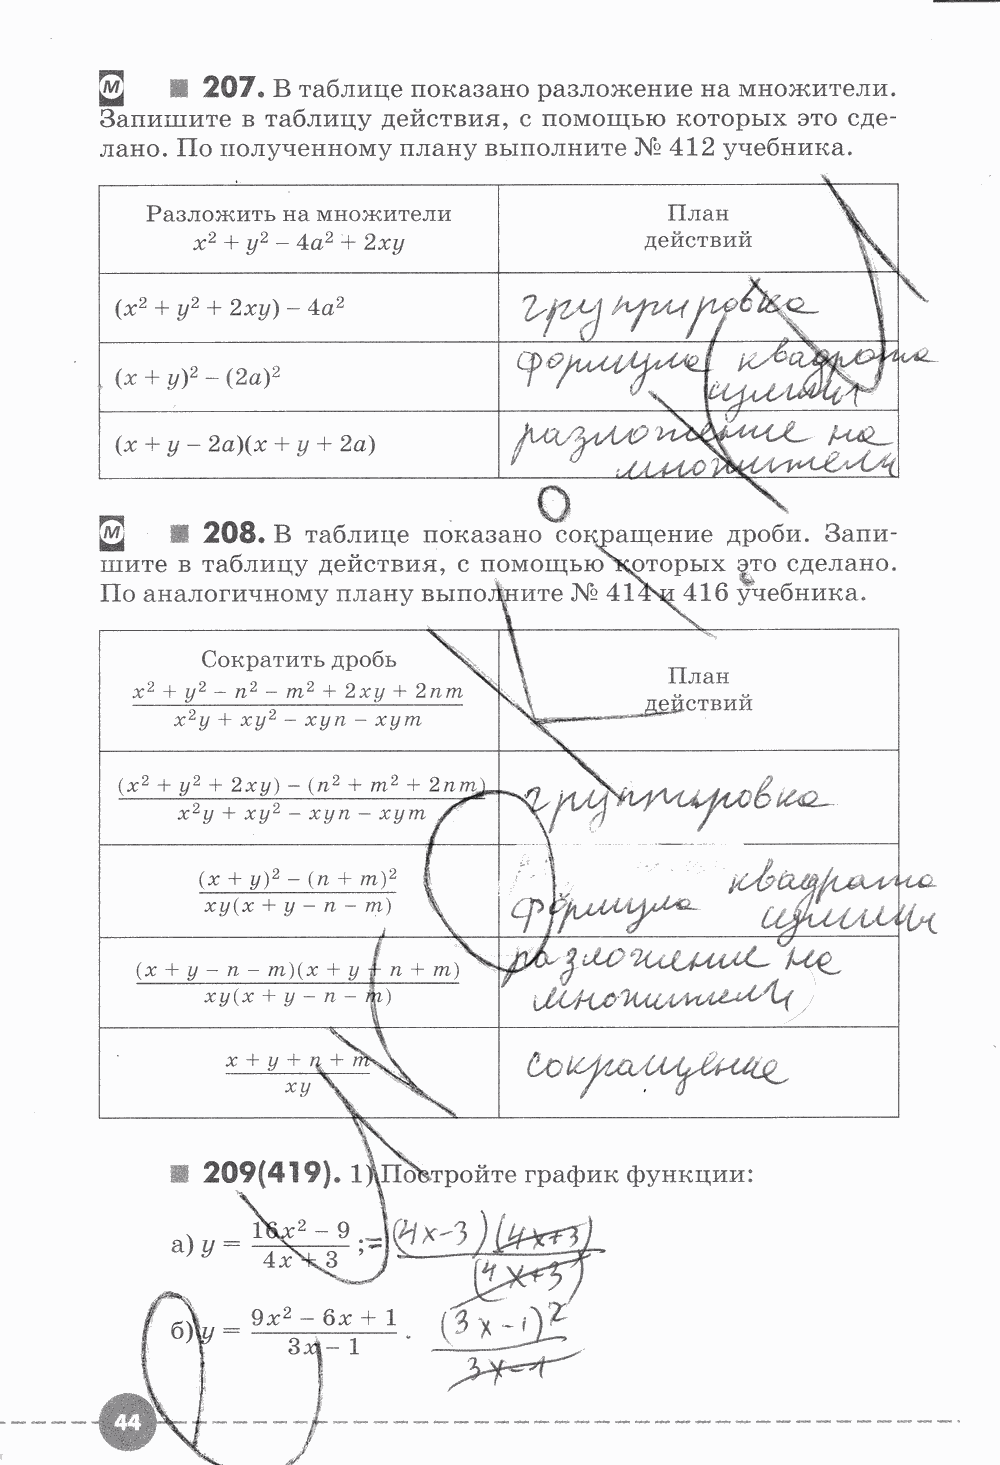 М 207. В таблице показано разложение на множители.
Запишите в таблицу действия, с помощью которых это сде-
лано. По полученному плану выполните № 412 учебника.
Разложить на множители
x² + y² – 4a² + 2xy
План
действий
(x² + y² + 2xy) – 4a²
группировка
(x + y)² – (2a)²
формула квадрата
суммы
(x + y – 2a)(x + y + 2a)
разложение на
множители
М 208. В таблице показано сокращение дроби. Запи-
шите в таблицу действия, с помощью которых это сделано.
По аналогичному плану выполните № 414 и 416 учебника.
Сократить дробь
x² + y² – n² – m² + 2xy + 2nm
x²y + xy² – xyn – xym
План
действий
(x² + y² + 2xy) – (n² + m² + 2nm)
x²y + xy² – xyn – xym
группировка
(x + y)² – (n + m)²
xy(x + y – n – m)
формула квадрата
суммы
(x + y – n – m)(x + y + n + m)
xy(x + y – n – m)
разложение на
множители
x + y + n + m
xy
сокращение
209(419). 1) Постройте график функции:
а) y = 16x² – 9
4x + 3 ;
= (4x-3)(4x+3)
(4x+3)
б) y = 9x² – 6x + 1
3x – 1 .
(3x-1)²
3x-1
44